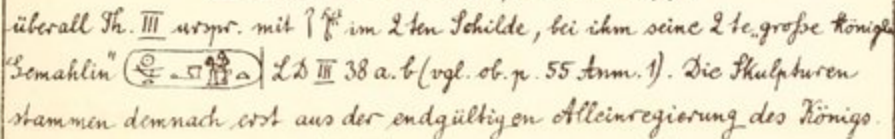 überall Th. III urspr. mit 𓋾 im 2ten Schilde, bei ihm seine 2te „große Königl.
Gemahlin" LD III 38 a. b (vgl. ob. p. 55 Anm. 1). Die Skulpturen
stammen demnach erst aus der endgültigen Alleinregierung des Königs.